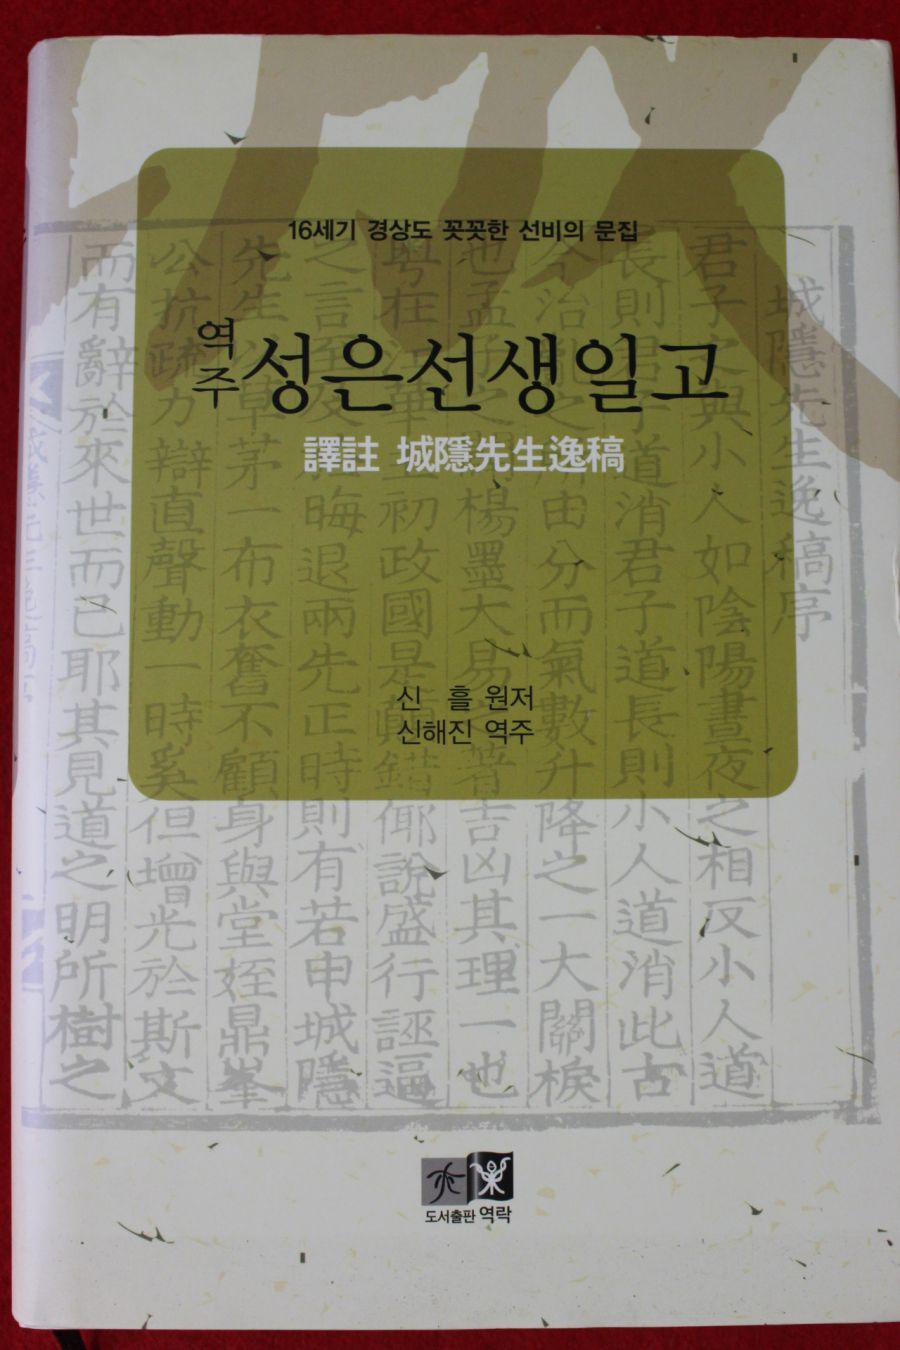 16세기 경상도 꼿꼿한 선비의 문집
역주 성은선생일고
譯註 城隱先生逸稿
신 흘 원저
신해진 역주
城隱先生逸稿序
君子之與小人如陰陽晝夜之相反小人道
長則君子道消君子道長則小人道消此古
今治亂之所由分而氣數升降之一大關棙
也孟子之闢楊墨大易著吉凶其理一也
粤在初政國是顚錯倻說盛行誣逼
之言晦退兩先正時則有若申城隱
先生以草茅一布衣奮不顧身與堂姪鼎峯
公抗疏力辯直聲動一時奚但增光於斯文
而有辭於來世而已耶其見道之明所樹之
도서출판 역락